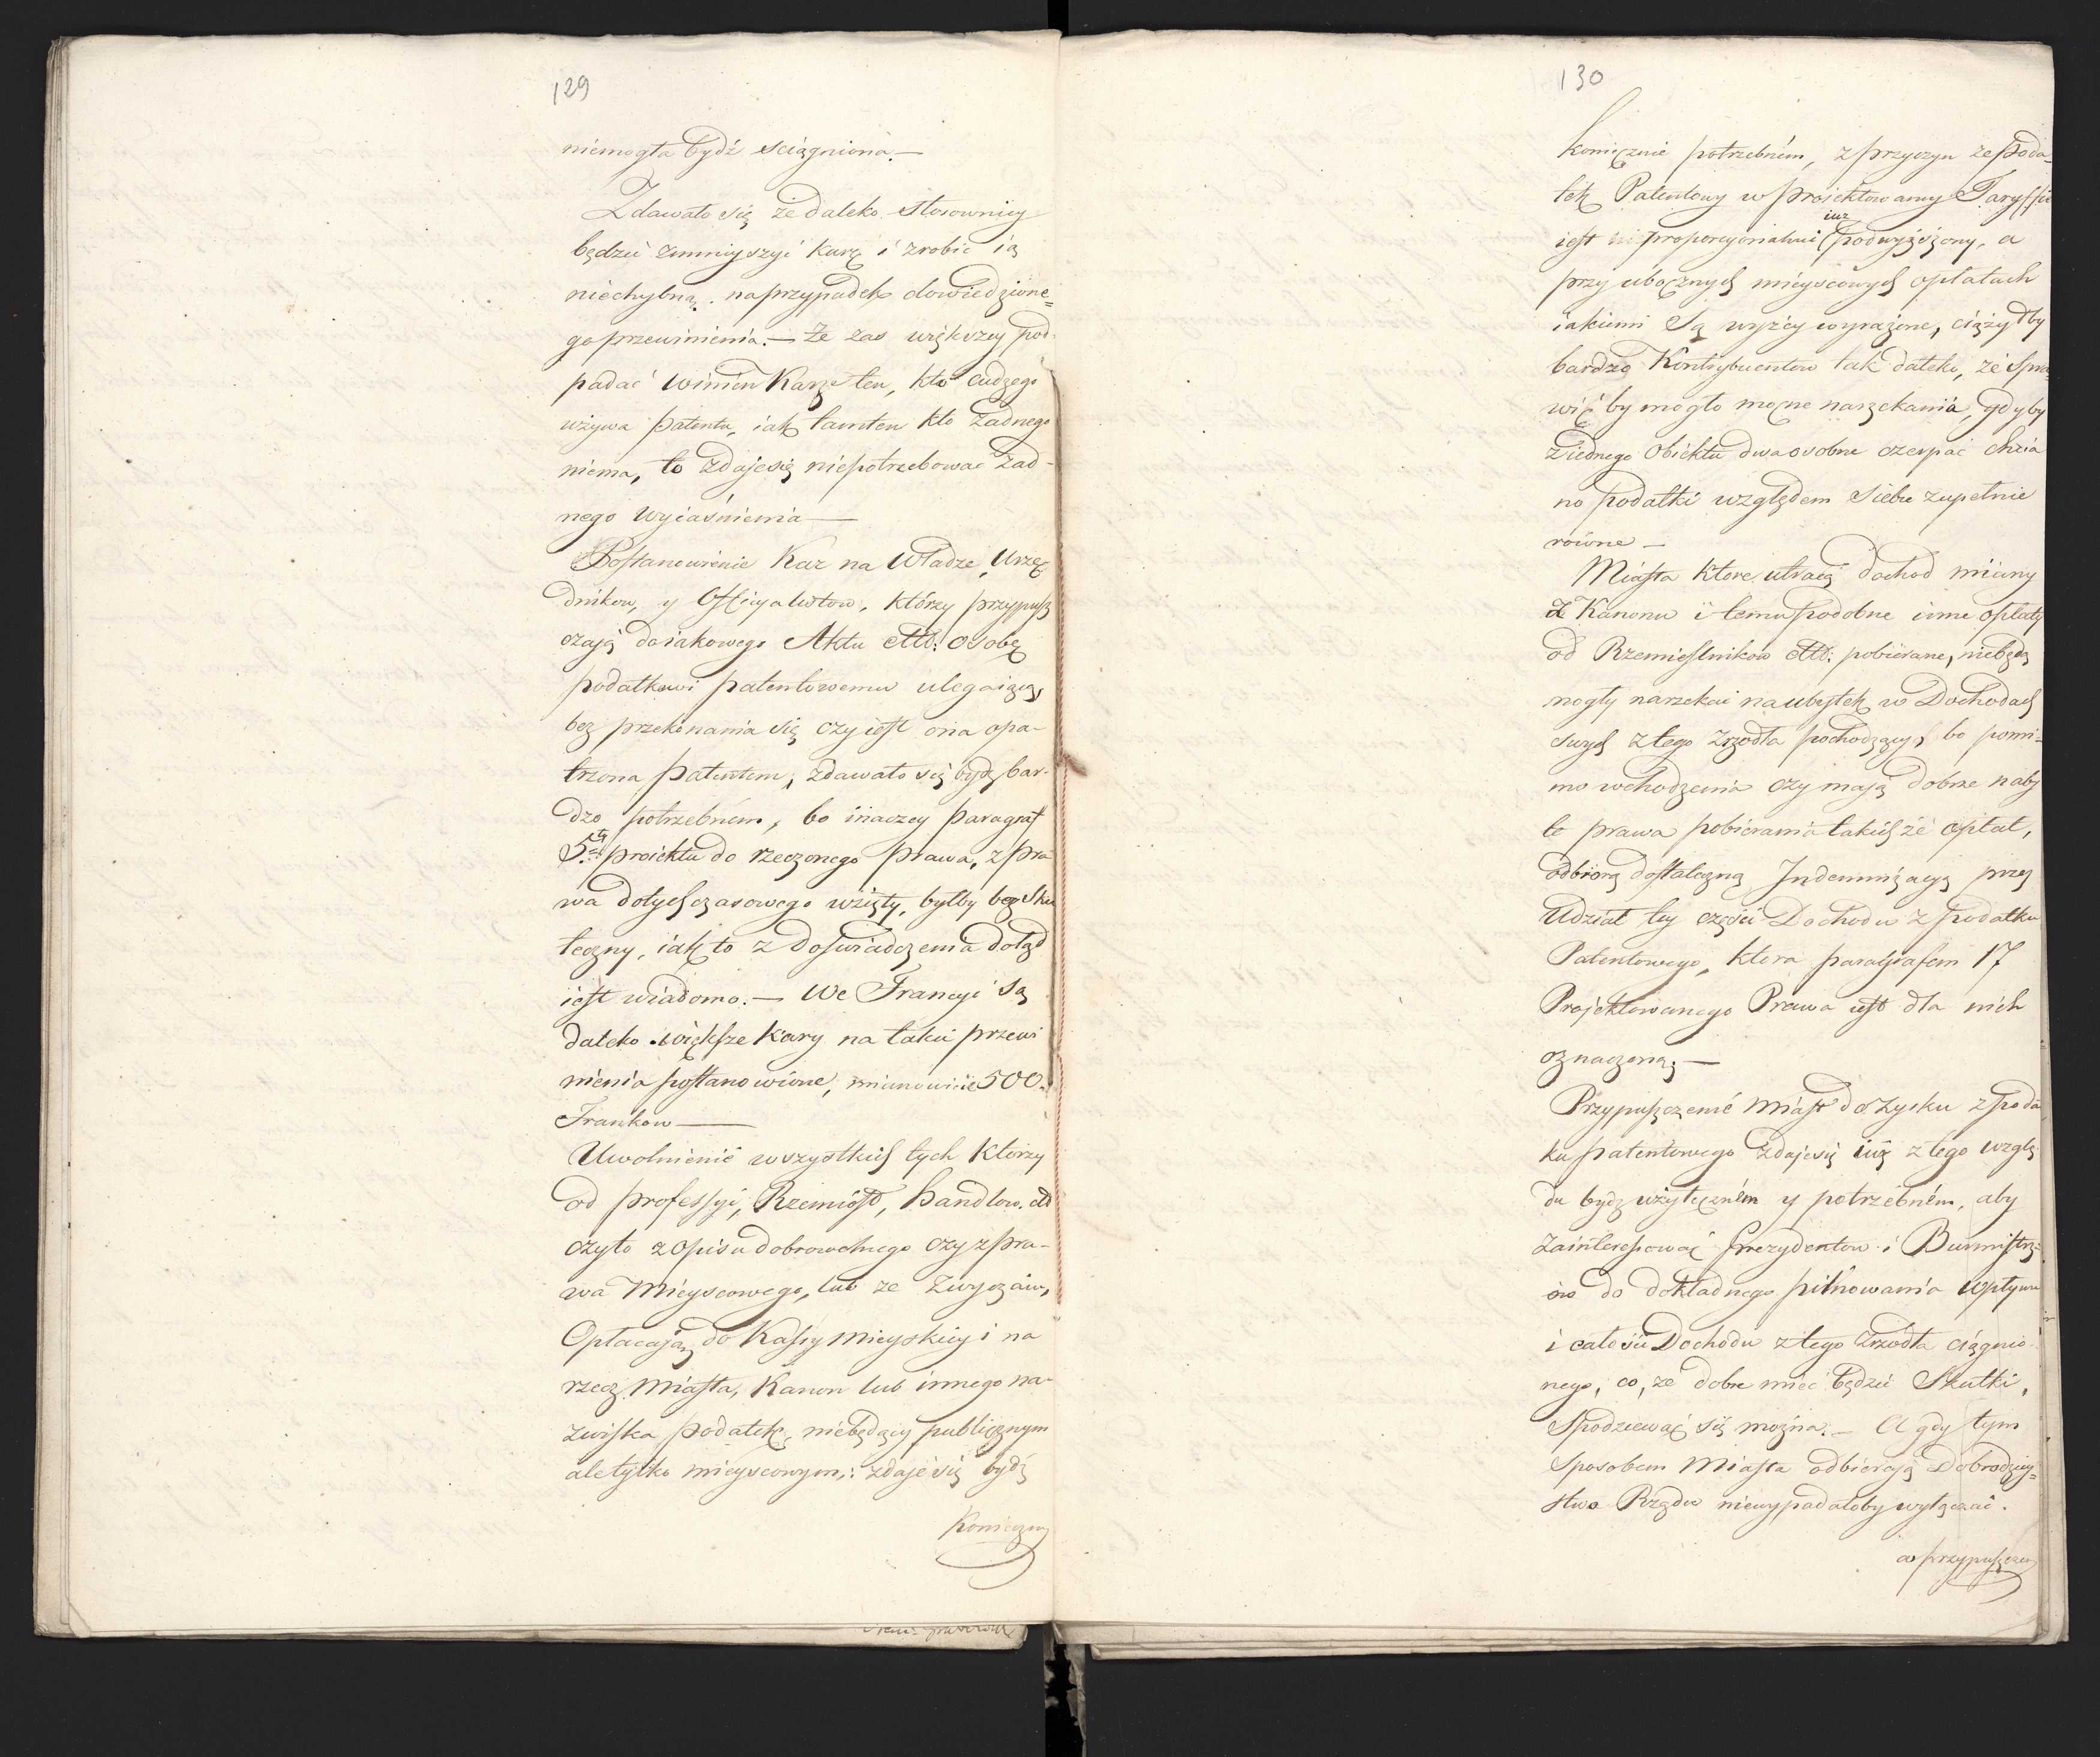 129
niemogła bydź sciągniona.—
Zdawało się że daleko stosowniey
będzie zmnieyszyć karę i zrobić ią
niechybną. na przypadek dowiedzione=
go przewinienia.— Że zas większey pod-
padać winien karze ten, kto cudzego
używa patentu, iak tamten kto żadnego
niema, to zdaje się niepotrzebować żad-
nego wyiaśnienia—
Postanowienie kar na Władze, Urzę
dnikow, y Officyalistow, którzy przypusz
czają do iakowego Aktu ettc: osobę
podatkowi patentowemu ulegaiącą,
bez przekonania się czy iest ona opa-
trzona patentem, zdawało się bydź bar-
dzo potrzebném, bo inaczey paragraf
5ty proiektu do rzeczonego prawa, z pra
wa dotychczasowego wzięty, byłby bez sku
teczny, iak to z doswiadczenia dotąd
iest wiadomo.— We Francyi są
daleko większe kary na takie przewi
nienia postanowione, mianowicie 500.
Frankow—
Uwolnienie wszystkich tych którzy
od professyi, Rzemiosł, handlow. ettc
czyto z opisu dobrowolnego czy z pra-
wa Mieyscowego, lub ze zwyczaiu,
Opłacają do Kassy mieyskiey i na
rzecz Miasta, Kanon lub innego na-
zwiska podatek, niebędący publicznym
ale tylko mieyscowym,: zdaje się bydź
koniecznie
130
koniecznie potrzebném, z przyczyn że poda-
tek Patentowy w proiektowaney Taryffie
iuz
iest proporcyonalnie podwyższony, a
przy ubocznych mieyscowych opłatach
iakiemi są wyżey wyrażone, ciążyłby
bardzo Kontrybuentow tak daleko, że spra
wić by mogło mocne narzekania, gdyby
z iednego obiektu dwa osobne czerpać chcia
no podatki względem siebie zupełnie
rowne—
Miasta ktore utracą dochod miany
z Kanonu i temu podobne inne opłaty
od Rzemieslnikow ettc: pobierane, niebędą
mogły narzekać na ubytek w Dochodach
swych z tego zrzodła pochodzący, bo pomi-
mo wchodzenia czy mają dobrze naby
te prawa pobierania takichże opłat,
odbiorą dostateczną Indemnizacyą przez
Udział tey części Dochodu z podatku
Patentowego, ktora paragrafem 17
Projektowanego Prawa iest dla nich
oznaczoną.—
Przypuszczenie miast do zysku z poda
ku patentowego zdaje się iuż z tego wzglę
du bydź użyteczném y potrzebném, aby
zainteressować Prezydentow i Burmistrz-
ow do dokładnego pilnowania wpływu
i całości Dochodu z tego zrzodła ciągnio
nego, co, ze dobre mieć będzie Skutki,
spodziewać się można.— A gdy tym
sposobem Miasta odbierają Dobrodziey=
stwo Rządu niewypadałoby wyłączać.
a przypuszczen